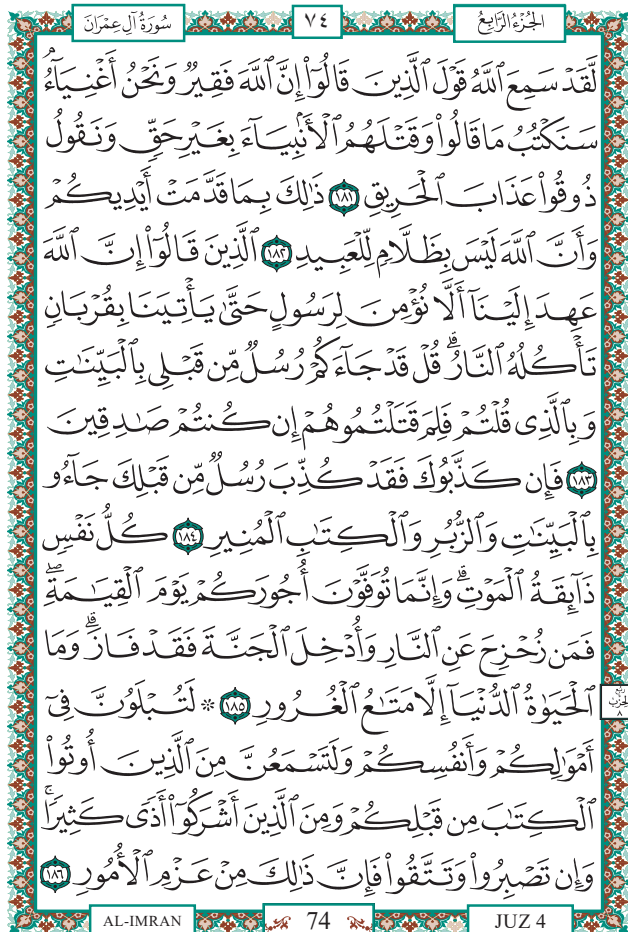 سُورَةُ آلِ عِمْرَانَ ٧٤ الجُزْءُ الرَّابِعُ
لَّقَدْ سَمِعَ ٱللَّهُ قَوْلَ ٱلَّذِينَ قَالُوٓا۟ إِنَّ ٱللَّهَ فَقِيرٌ وَنَحْنُ أَغْنِيَآءُ ۘ
سَنَكْتُبُ مَا قَالُوا۟ وَقَتْلَهُمُ ٱلْأَنۢبِيَآءَ بِغَيْرِ حَقٍّ وَنَقُولُ
ذُوقُوا۟ عَذَابَ ٱلْحَرِيقِ ١٨١ ذَٰلِكَ بِمَا قَدَّمَتْ أَيْدِيكُمْ
وَأَنَّ ٱللَّهَ لَيْسَ بِظَلَّامٍ لِّلْعَبِيدِ ١٨٢ ٱلَّذِينَ قَالُوٓا۟ إِنَّ ٱللَّهَ
عَهِدَ إِلَيْنَآ أَلَّا نُؤْمِنَ لِرَسُولٍ حَتَّىٰ يَأْتِيَنَا بِقُرْبَانٍ
تَأْكُلُهُ ٱلنَّارُ ۗ قُلْ قَدْ جَآءَكُمْ رُسُلٌ مِّن قَبْلِى بِٱلْبَيِّنَٰتِ
وَبِٱلَّذِى قُلْتُمْ فَلِمَ قَتَلْتُمُوهُمْ إِن كُنتُمْ صَٰدِقِينَ
١٨٣ فَإِن كَذَّبُوكَ فَقَدْ كُذِّبَ رُسُلٌ مِّن قَبْلِكَ جَآءُو
بِٱلْبَيِّنَٰتِ وَٱلزُّبُرِ وَٱلْكِتَٰبِ ٱلْمُنِيرِ ١٨٤ كُلُّ نَفْسٍ
ذَآئِقَةُ ٱلْمَوْتِ ۗ وَإِنَّمَا تُوَفَّوْنَ أُجُورَكُمْ يَوْمَ ٱلْقِيَٰمَةِ ۖ
فَمَن زُحْزِحَ عَنِ ٱلنَّارِ وَأُدْخِلَ ٱلْجَنَّةَ فَقَدْ فَازَ ۗ وَمَا
ٱلْحَيَوٰةُ ٱلدُّنْيَآ إِلَّا مَتَٰعُ ٱلْغُرُورِ ١٨٥ ۞ لَتُبْلَوُنَّ فِىٓ
أَمْوَٰلِكُمْ وَأَنفُسِكُمْ وَلَتَسْمَعُنَّ مِنَ ٱلَّذِينَ أُوتُوا۟
ٱلْكِتَٰبَ مِن قَبْلِكُمْ وَمِنَ ٱلَّذِينَ أَشْرَكُوٓا۟ أَذًى كَثِيرًا ۚ
وَإِن تَصْبِرُوا۟ وَتَتَّقُوا۟ فَإِنَّ ذَٰلِكَ مِنْ عَزْمِ ٱلْأُمُورِ ١٨٦
AL-IMRAN 74 JUZ 4